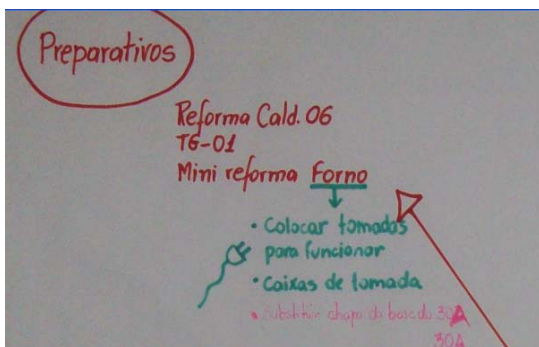 Preparativos
Reforma Cald. 06
TG-01
Mini reforma Forno
• Colocar tomadas
para funcionar
• Caixas de tomada
• Substituir chapa da base do 30A
30A